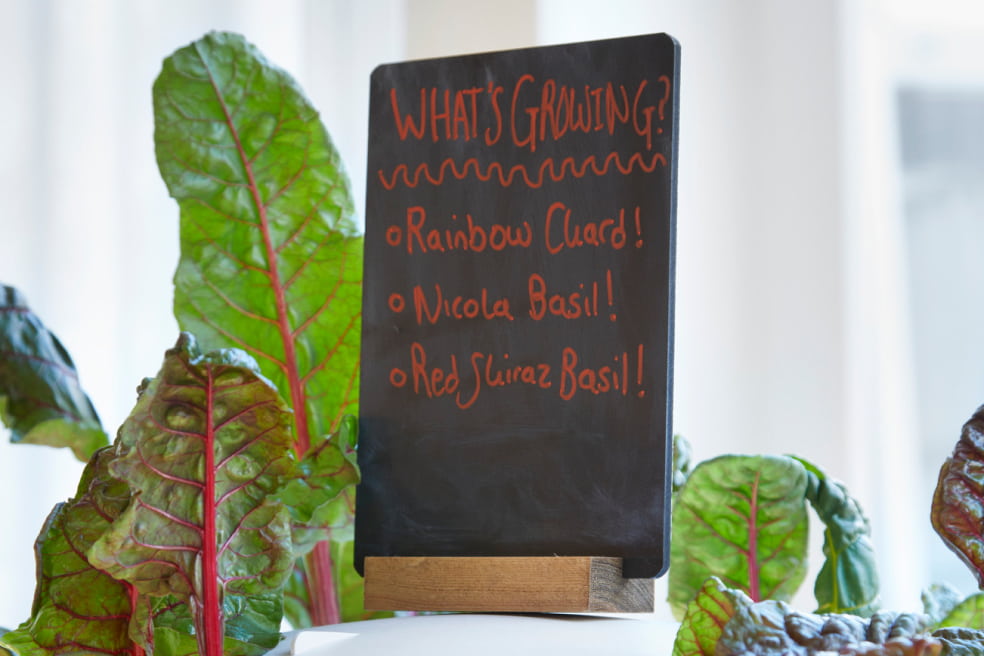 WHAT'S GROWING?
Rainbow Chard!
Nicola Basil!
Red Shiraz Basil!